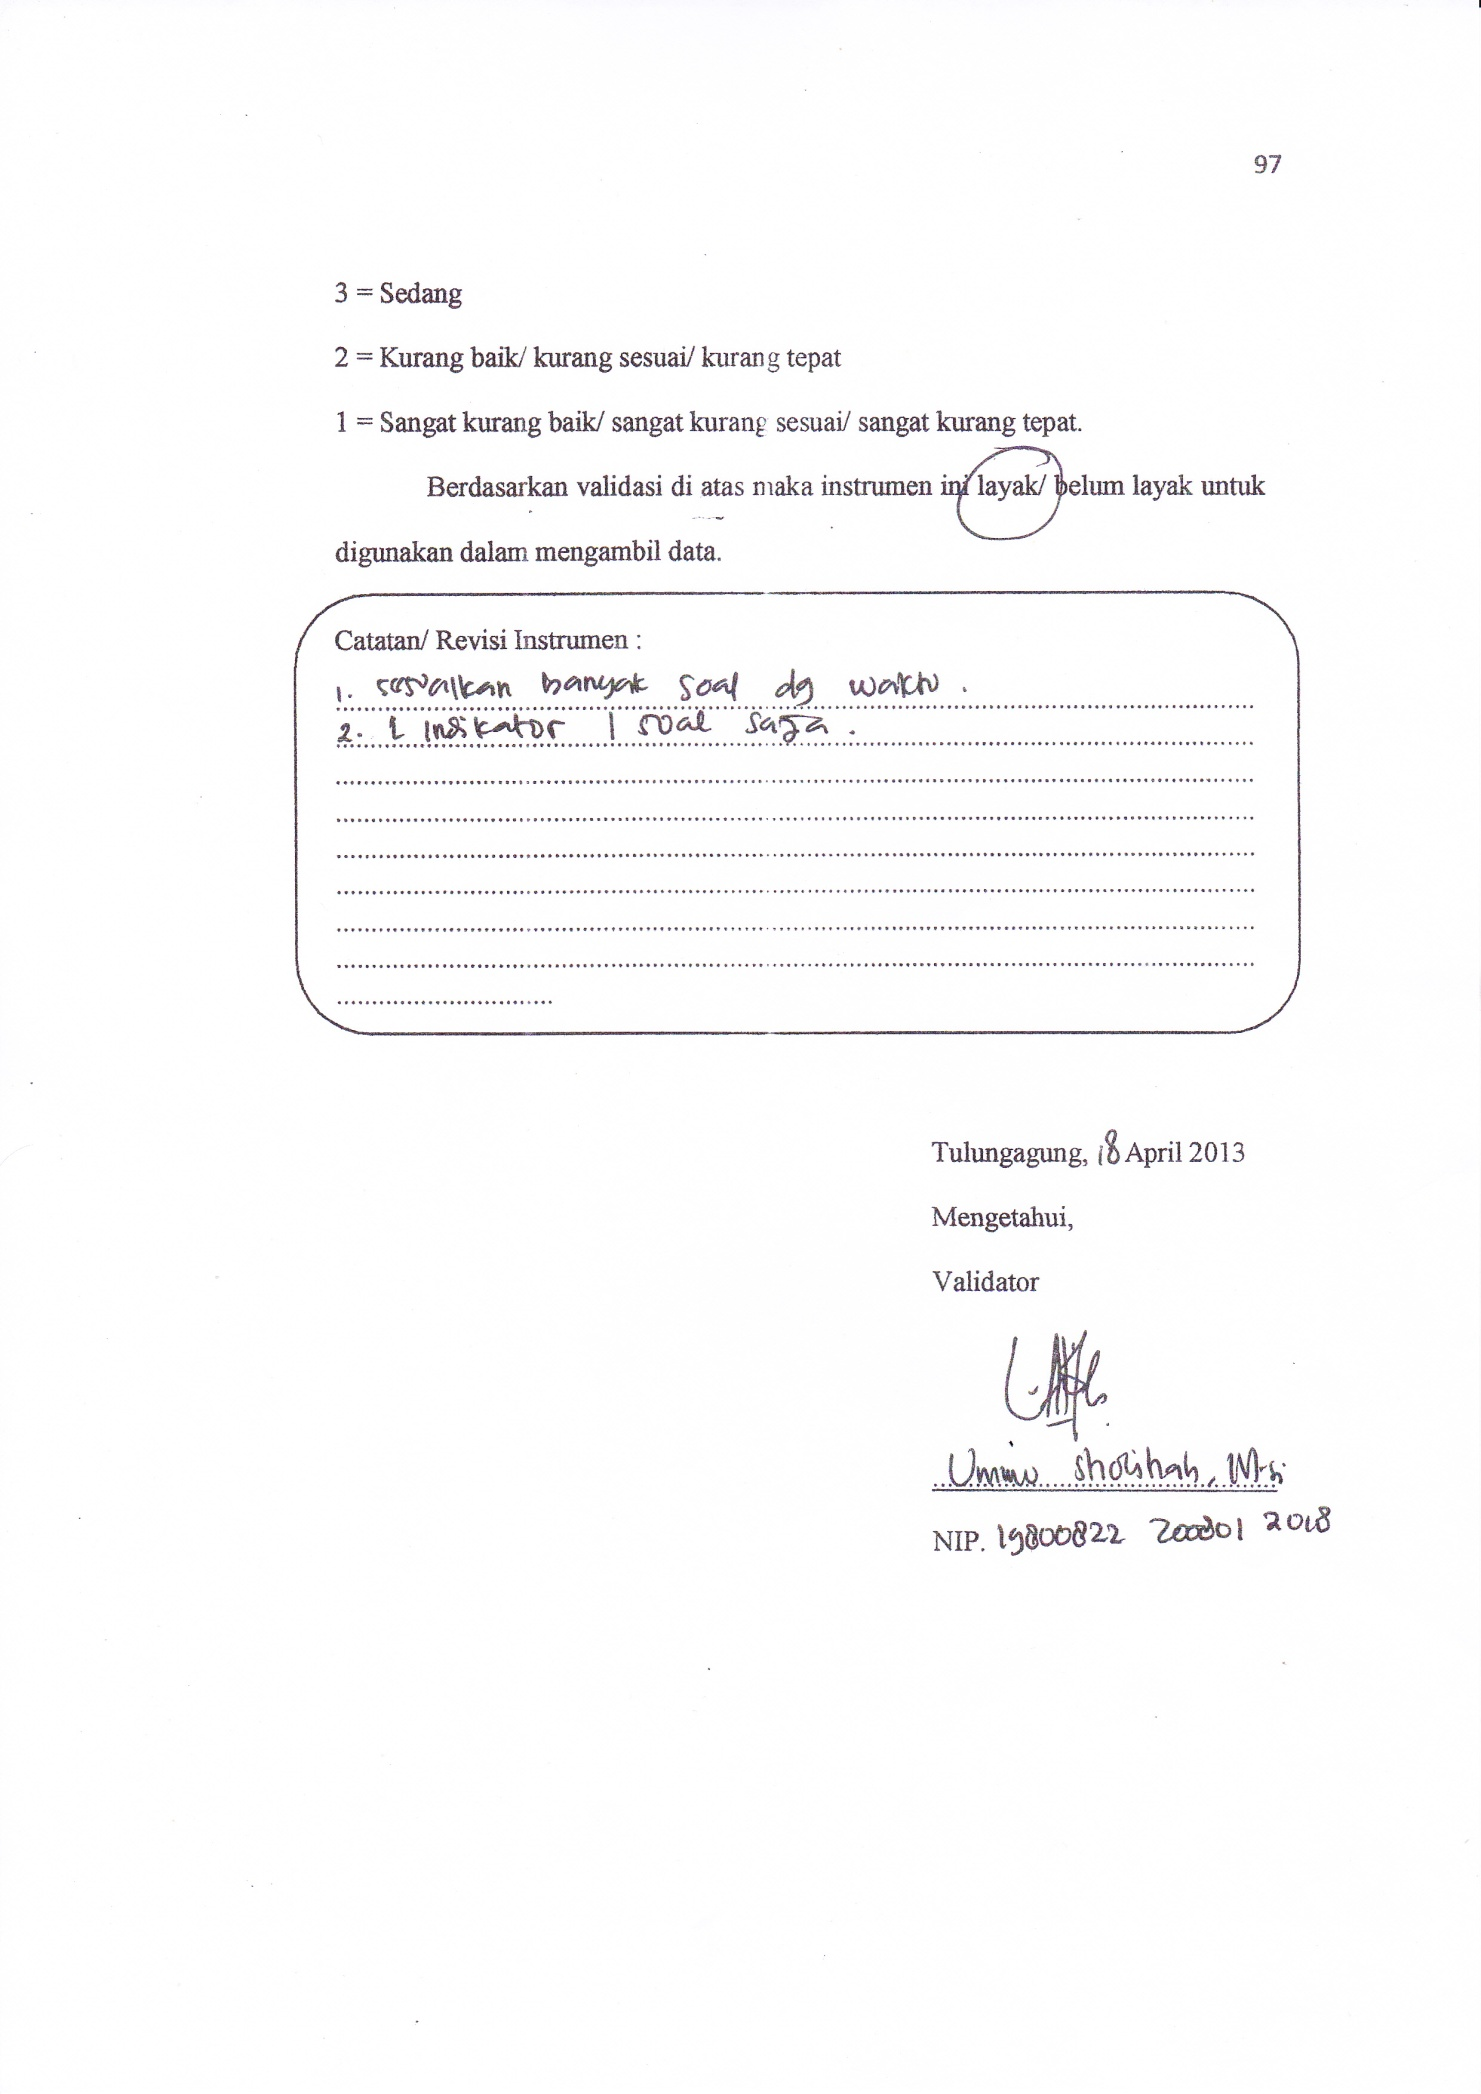 97
3 = Sedang
2 = Kurang baik/ kurang sesuai/ kurang tepat
1 = Sangat kurang baik/ sangat kurang sesuai/ sangat kurang tepat.
Berdasarkan validasi di atas maka instrumen ini layak/ belum layak untuk
digunakan dalam mengambil data.
Catatan/ Revisi Instrumen :
1. sesuaikan banyak soal dg waktu .
2. 1 Indikator 1 soal saja .
Tulungagung, 18 April 2013
Mengetahui,
Validator
Ummu Sholihah, M.Si
NIP. 19800822 200801 2018